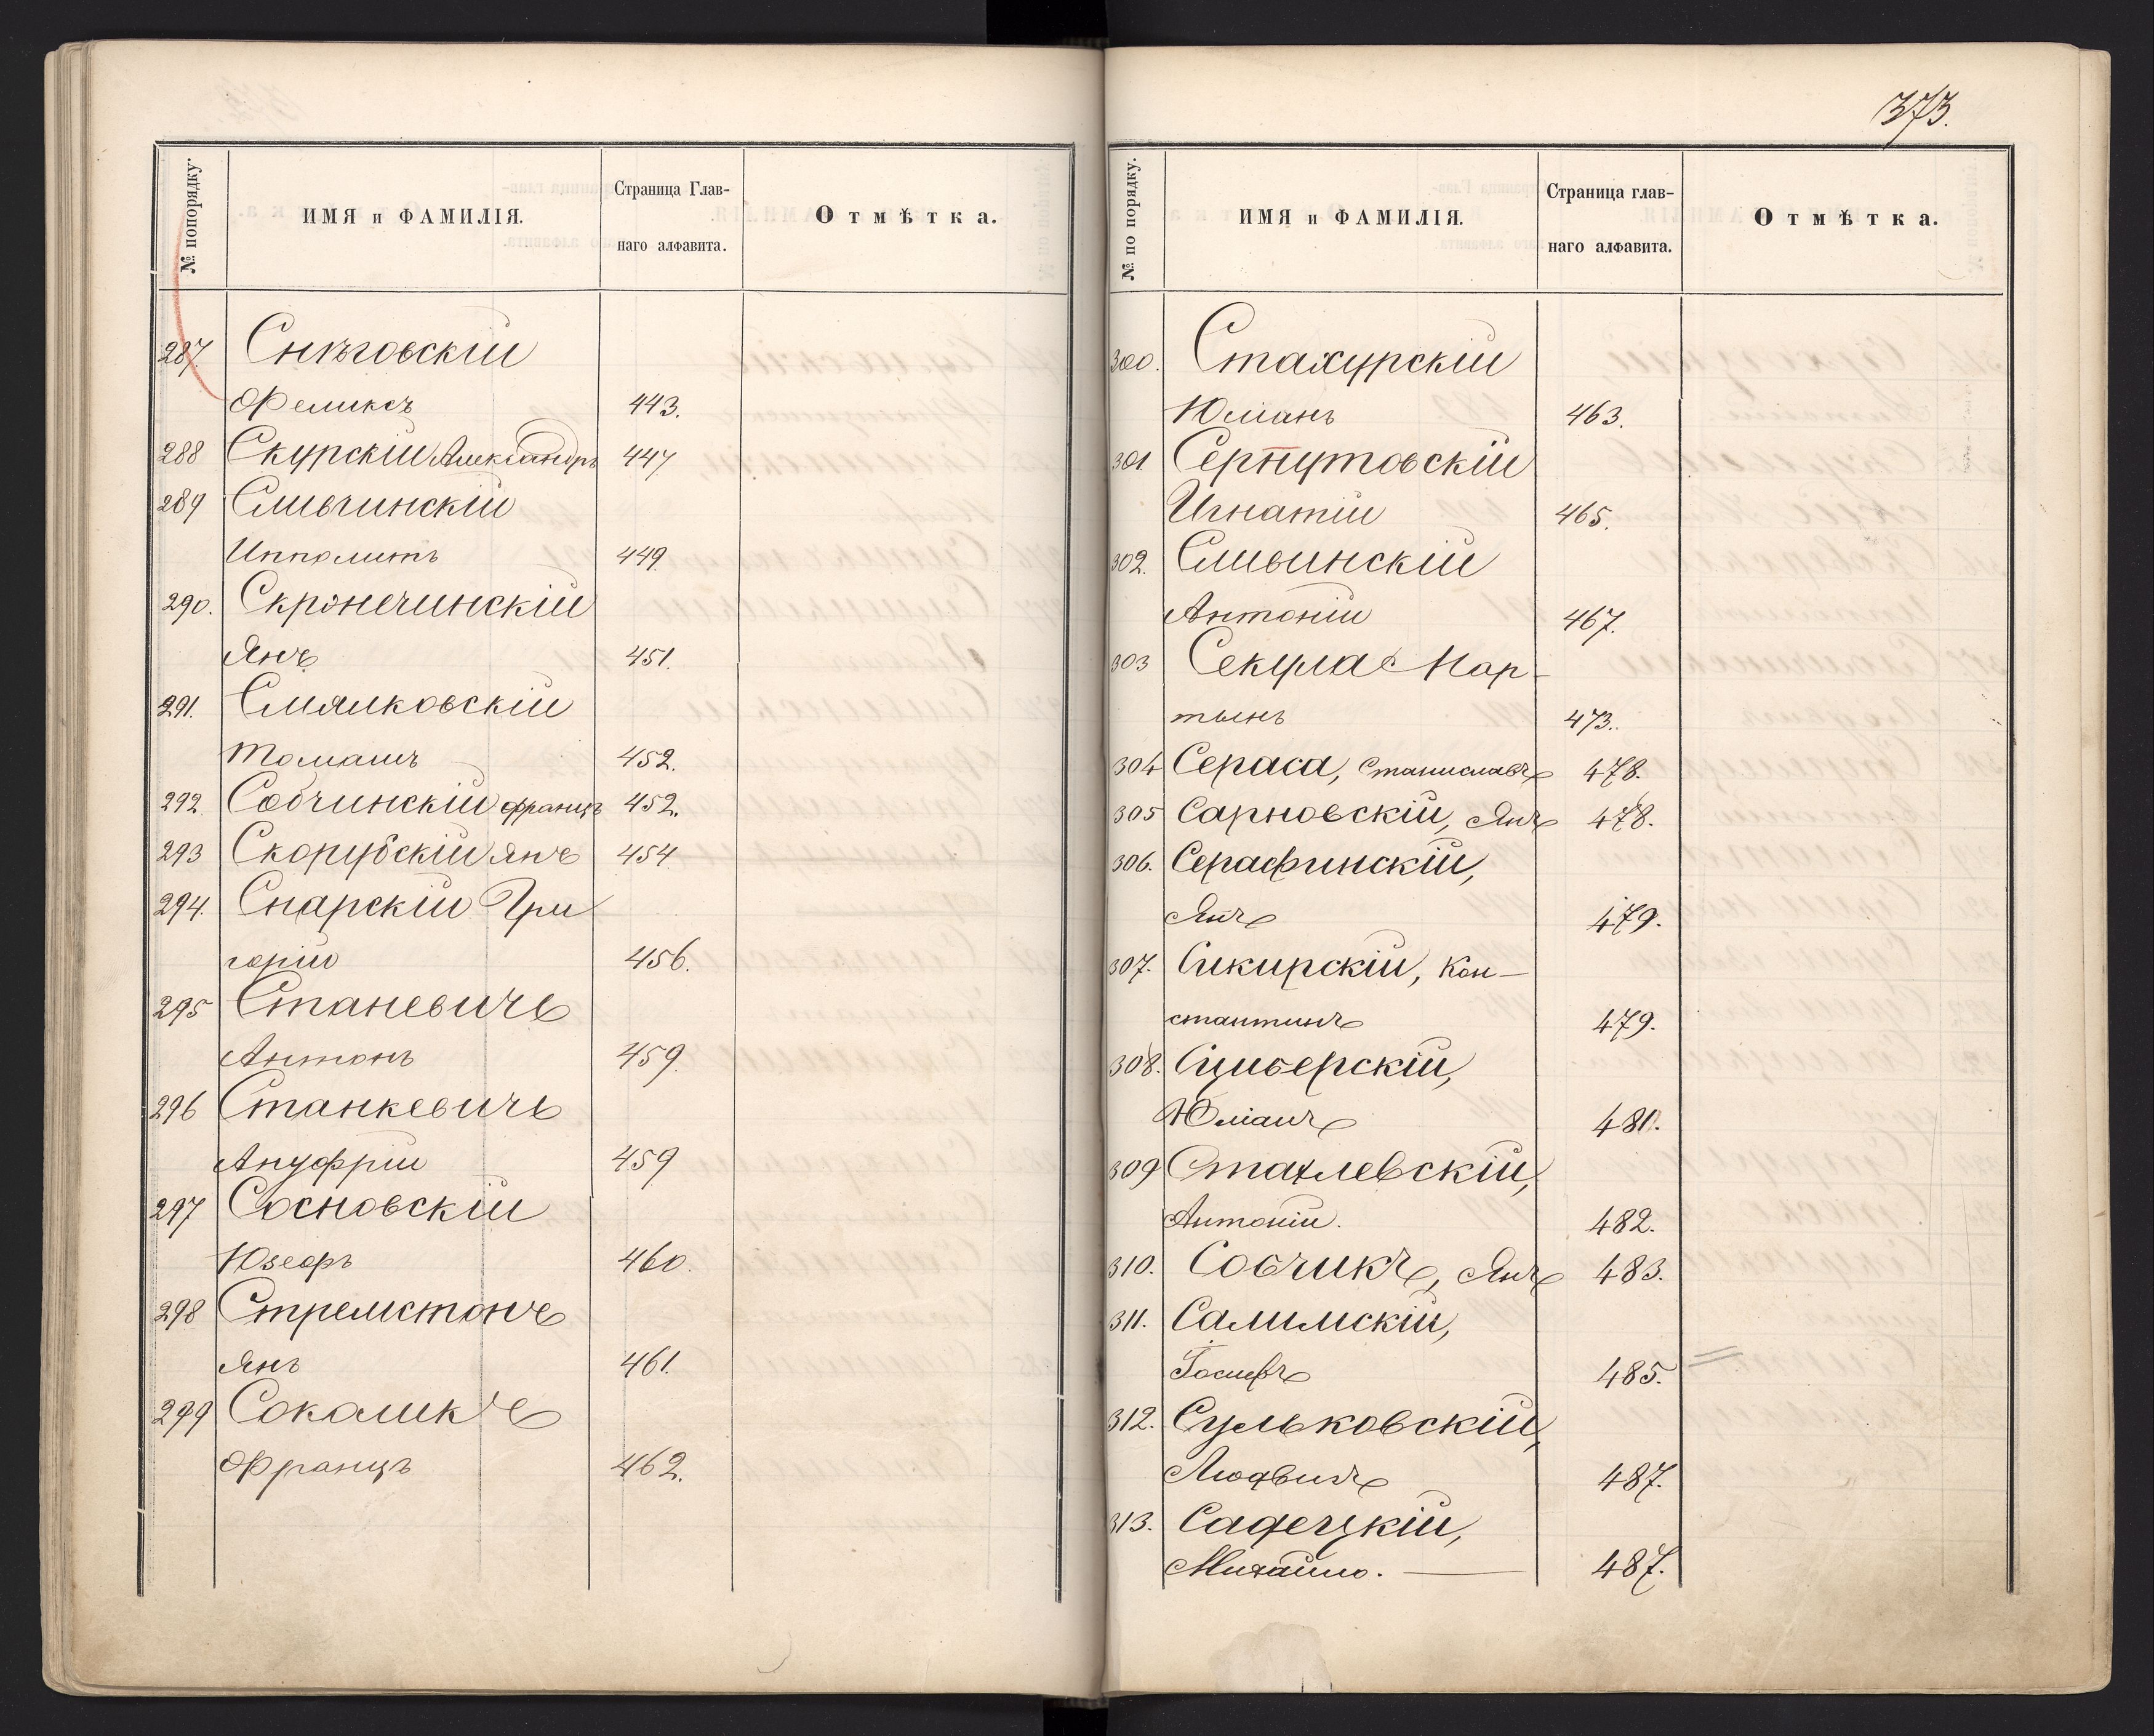 № попорядку.
ИМЯ и ФАМИЛІЯ.
Страница Глав-
наго алфавита.
Отмѣтка.
287. Снѣговскій
Феликсъ 443.
288 Скурскій Александръ 447
289 Сливчинскій
Ипполитъ 449
290. Скронечинскій
Янъ 451.
291. Смялковскій
Томашъ 452.
292 Собчинскій Францъ 452.
293 Скорубскій Янъ 454
294. Снарскій Гри
горій 456.
295 Станевичъ
Антонъ 459.
296 Станкевичъ
Ануфрій 459
297 Сосновскій
Юзефъ 460.
298 Стремстонъ
Янъ 461.
299 Сокаликъ
Францъ 462.
373.
№ по порядку.
ИМЯ и ФАМИЛІЯ.
Страница глав-
наго алфавита.
Отмѣтка.
300. Стахурскій
Юліанъ 463.
301 Серпутовскій
Игнатій 465.
302. Сливинскій
Антоній 467.
303 Секула Мар-
тынъ 473.
304 Сераса, Станиславъ 478.
305 Сарновскій, Янъ 478.
306. Серафинскій,
Янъ 479.
307. Сикирскій, Кон-
стантинъ 479.
308. Сциберскій,
Юліанъ 481.
309 Стахлевскій,
Антоній. 482.
310. Собчикъ, Янъ 483.
311. Салимскій,
Іосифъ 485.
312. Сульковскій,
Людвигъ 487.
313. Садецкій,
Михайло. — 487.